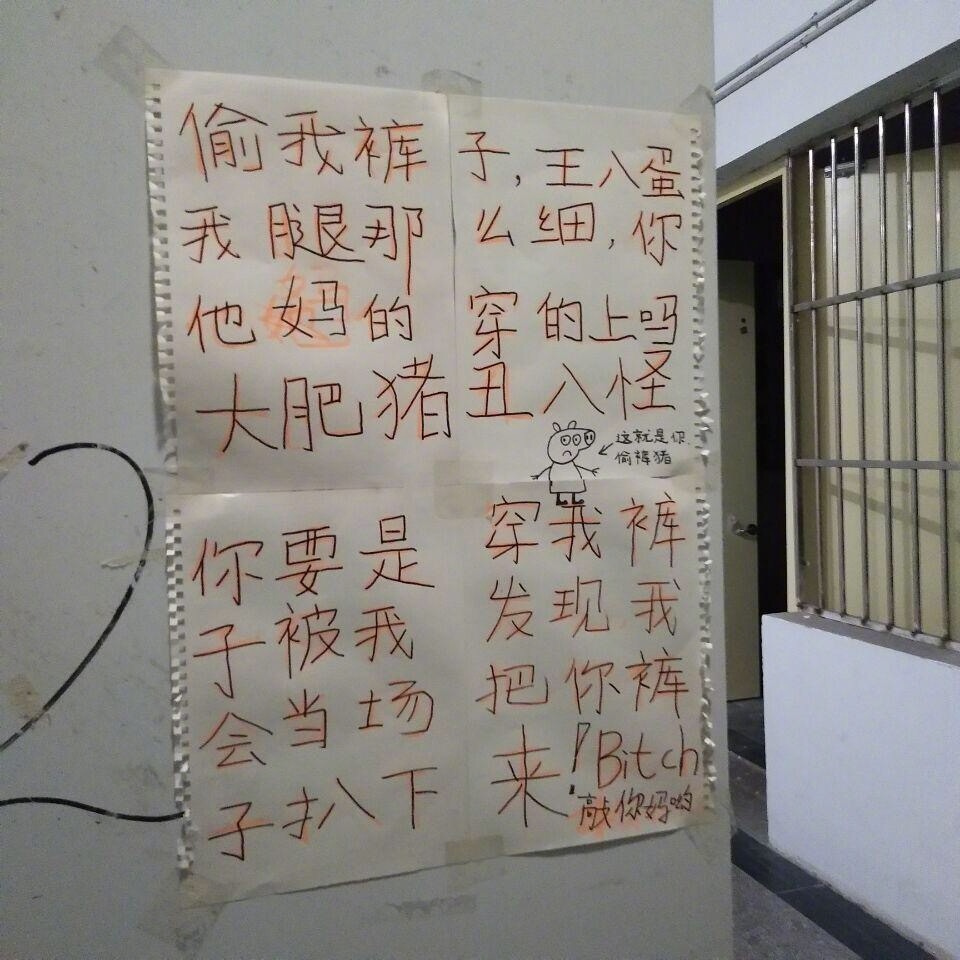 偷我裤子,王八蛋
我腿那么细,你
他妈的穿的上吗
大肥猪丑八怪
这就是你.
偷裤猪
你要是穿我裤
子被我发现我
会当场把你裤
子扒下来!Bitch
敲你妈哟